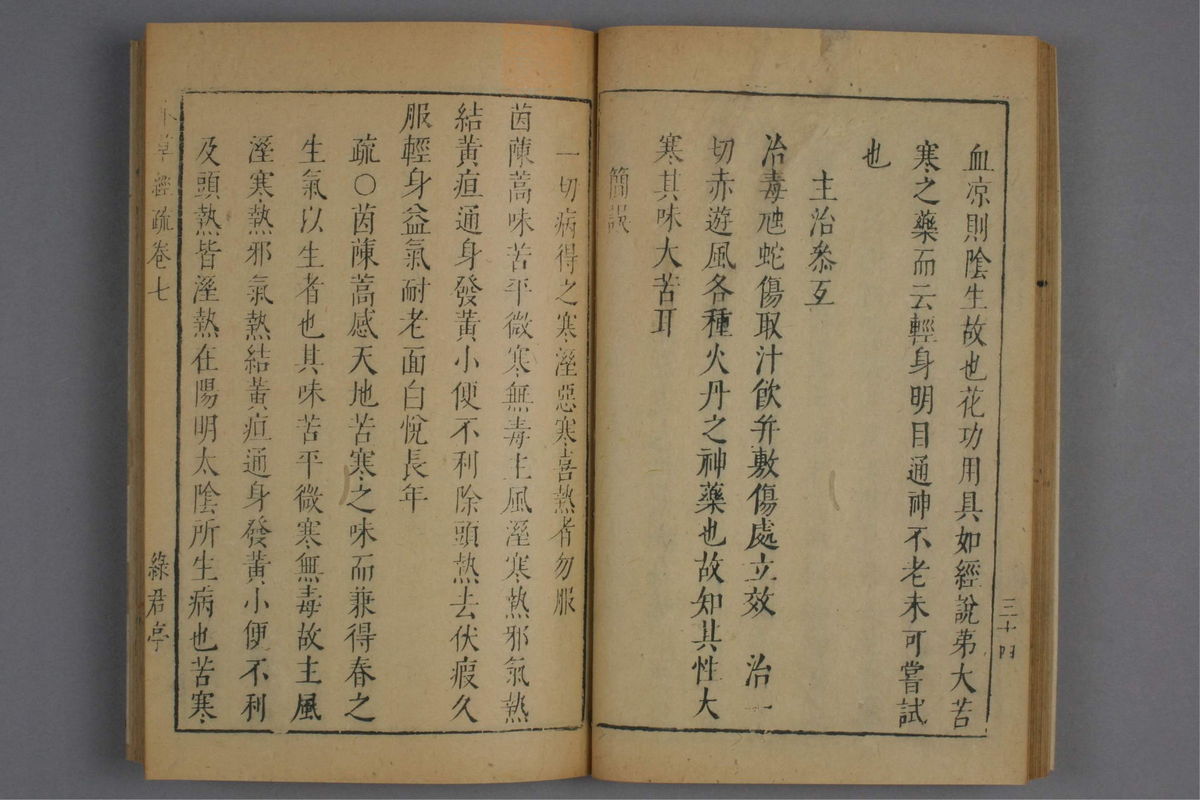 三十四
血凉則陰生故也花功用具如經說弟大苦
寒之藥而云輕身明目通神不老未可嘗試
也
主治叅互
治毒虺蛇傷取汁飲并敷傷處立效 治一
切赤遊風各種火丹之神藥也故知其性大
寒其味大苦耳
簡誤
一切病得之寒溼惡寒喜熱者勿服
茵蔯蒿味苦平微寒無毒主風溼寒熱邪氣熱
結黃疸通身發黃小便不利除頭熱去伏瘕久
服輕身益氣耐老面白悅長年
疏〇茵蔯蒿感天地苦寒之味而兼得春之
生氣以生者也其味苦平微寒無毒故主風
溼寒熱邪氣熱結黃疸通身發黃小便不利
及頭熱皆溼熱在陽明太陰所生病也苦寒
本草經疏卷七
綠君亭